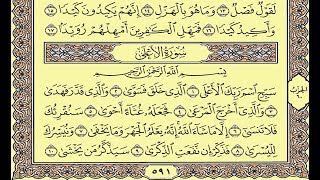 لَقَوْلٌ فَصْلٌ ١٣ وَمَا هُوَ بِٱلْهَزْلِ ١٤ إِنَّهُمْ يَكِيدُونَ كَيْدًا ١٥
وَأَكِيدُ كَيْدًا ١٦ فَمَهِّلِ ٱلْكَٰفِرِينَ أَمْهِلْهُمْ رُوَيْدًۢا ١٧
سُورَةُ الأَعْلَىٰ
بِسْمِ ٱللَّهِ ٱلرَّحْمَٰنِ ٱلرَّحِيمِ
سَبِّحِ ٱسْمَ رَبِّكَ ٱلْأَعْلَى ١ ٱلَّذِى خَلَقَ فَسَوَّىٰ ٢ وَٱلَّذِى قَدَّرَ فَهَدَىٰ
٣ وَٱلَّذِىٓ أَخْرَجَ ٱلْمَرْعَىٰ ٤ فَجَعَلَهُۥ غُثَآءً أَحْوَىٰ ٥ سَنُقْرِئُكَ
فَلَا تَنسَىٰٓ ٦ إِلَّا مَا شَآءَ ٱللَّهُ إِنَّهُۥ يَعْلَمُ ٱلْجَهْرَ وَمَا يَخْفَىٰ ٧ وَنُيَسِّرُكَ
لِلْيُسْرَىٰ ٨ فَذَكِّرْ إِن نَّفَعَتِ ٱلذِّكْرَىٰ ٩ سَيَذَّكَّرُ مَن يَخْشَىٰ ١٠
٥٩١